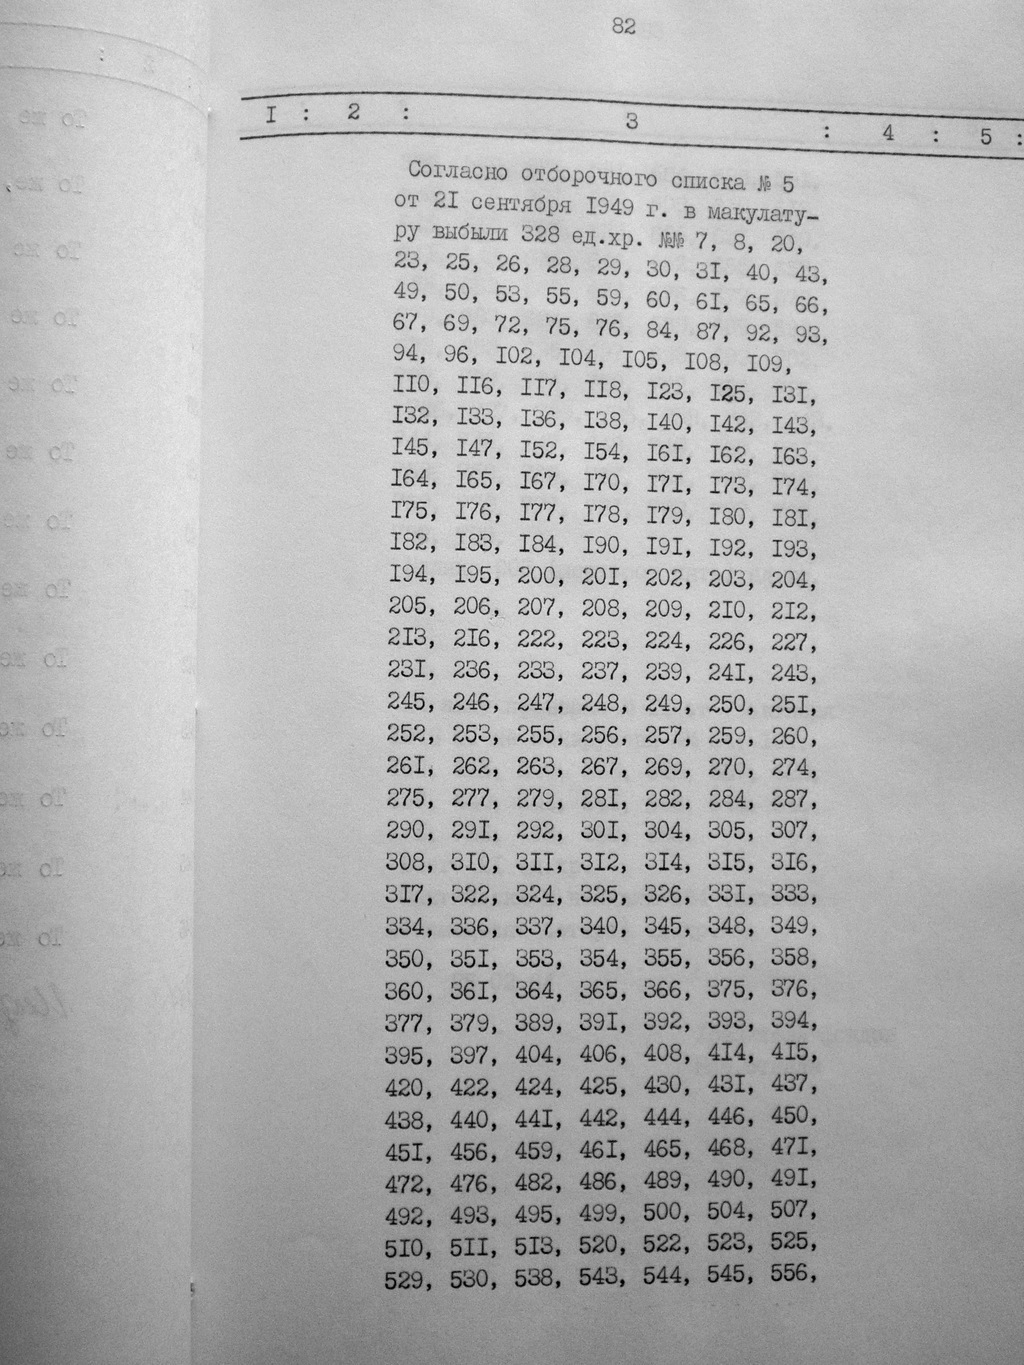 82
I : 2 : 3 : 4 : 5 :
Согласно отборочного списка № 5
от 2I сентября I949 г. в макулату-
ру выбыли 328 ед.хр. №№ 7, 8, 20,
23, 25, 26, 28, 29, 30, 3I, 40, 43,
49, 50, 53, 55, 59, 60, 6I, 65, 66,
67, 69, 72, 75, 76, 84, 87, 92, 93,
94, 96, I02, I04, I05, I08, I09,
II0, II6, II7, II8, I23, I25, I3I,
I32, I33, I36, I38, I40, I42, I43,
I45, I47, I52, I54, I6I, I62, I63,
I64, I65, I67, I70, I7I, I73, I74,
I75, I76, I77, I78, I79, I80, I8I,
I82, I83, I84, I90, I9I, I92, I93,
I94, I95, 200, 20I, 202, 203, 204,
205, 206, 207, 208, 209, 2I0, 2I2,
2I3, 2I6, 222, 223, 224, 226, 227,
23I, 236, 233, 237, 239, 24I, 243,
245, 246, 247, 248, 249, 250, 25I,
252, 253, 255, 256, 257, 259, 260,
26I, 262, 263, 267, 269, 270, 274,
275, 277, 279, 28I, 282, 284, 287,
290, 29I, 292, 30I, 304, 305, 307,
308, 3I0, 3II, 3I2, 3I4, 3I5, 3I6,
3I7, 322, 324, 325, 326, 33I, 333,
334, 336, 337, 340, 345, 348, 349,
350, 35I, 353, 354, 355, 356, 358,
360, 36I, 364, 365, 366, 375, 376,
377, 379, 389, 39I, 392, 393, 394,
395, 397, 404, 406, 408, 4I4, 4I5,
420, 422, 424, 425, 430, 43I, 437,
438, 440, 44I, 442, 444, 446, 450,
45I, 456, 459, 46I, 465, 468, 47I,
472, 476, 482, 486, 489, 490, 49I,
492, 493, 495, 499, 500, 504, 507,
5I0, 5II, 5I3, 520, 522, 523, 525,
529, 530, 538, 543, 544, 545, 556,